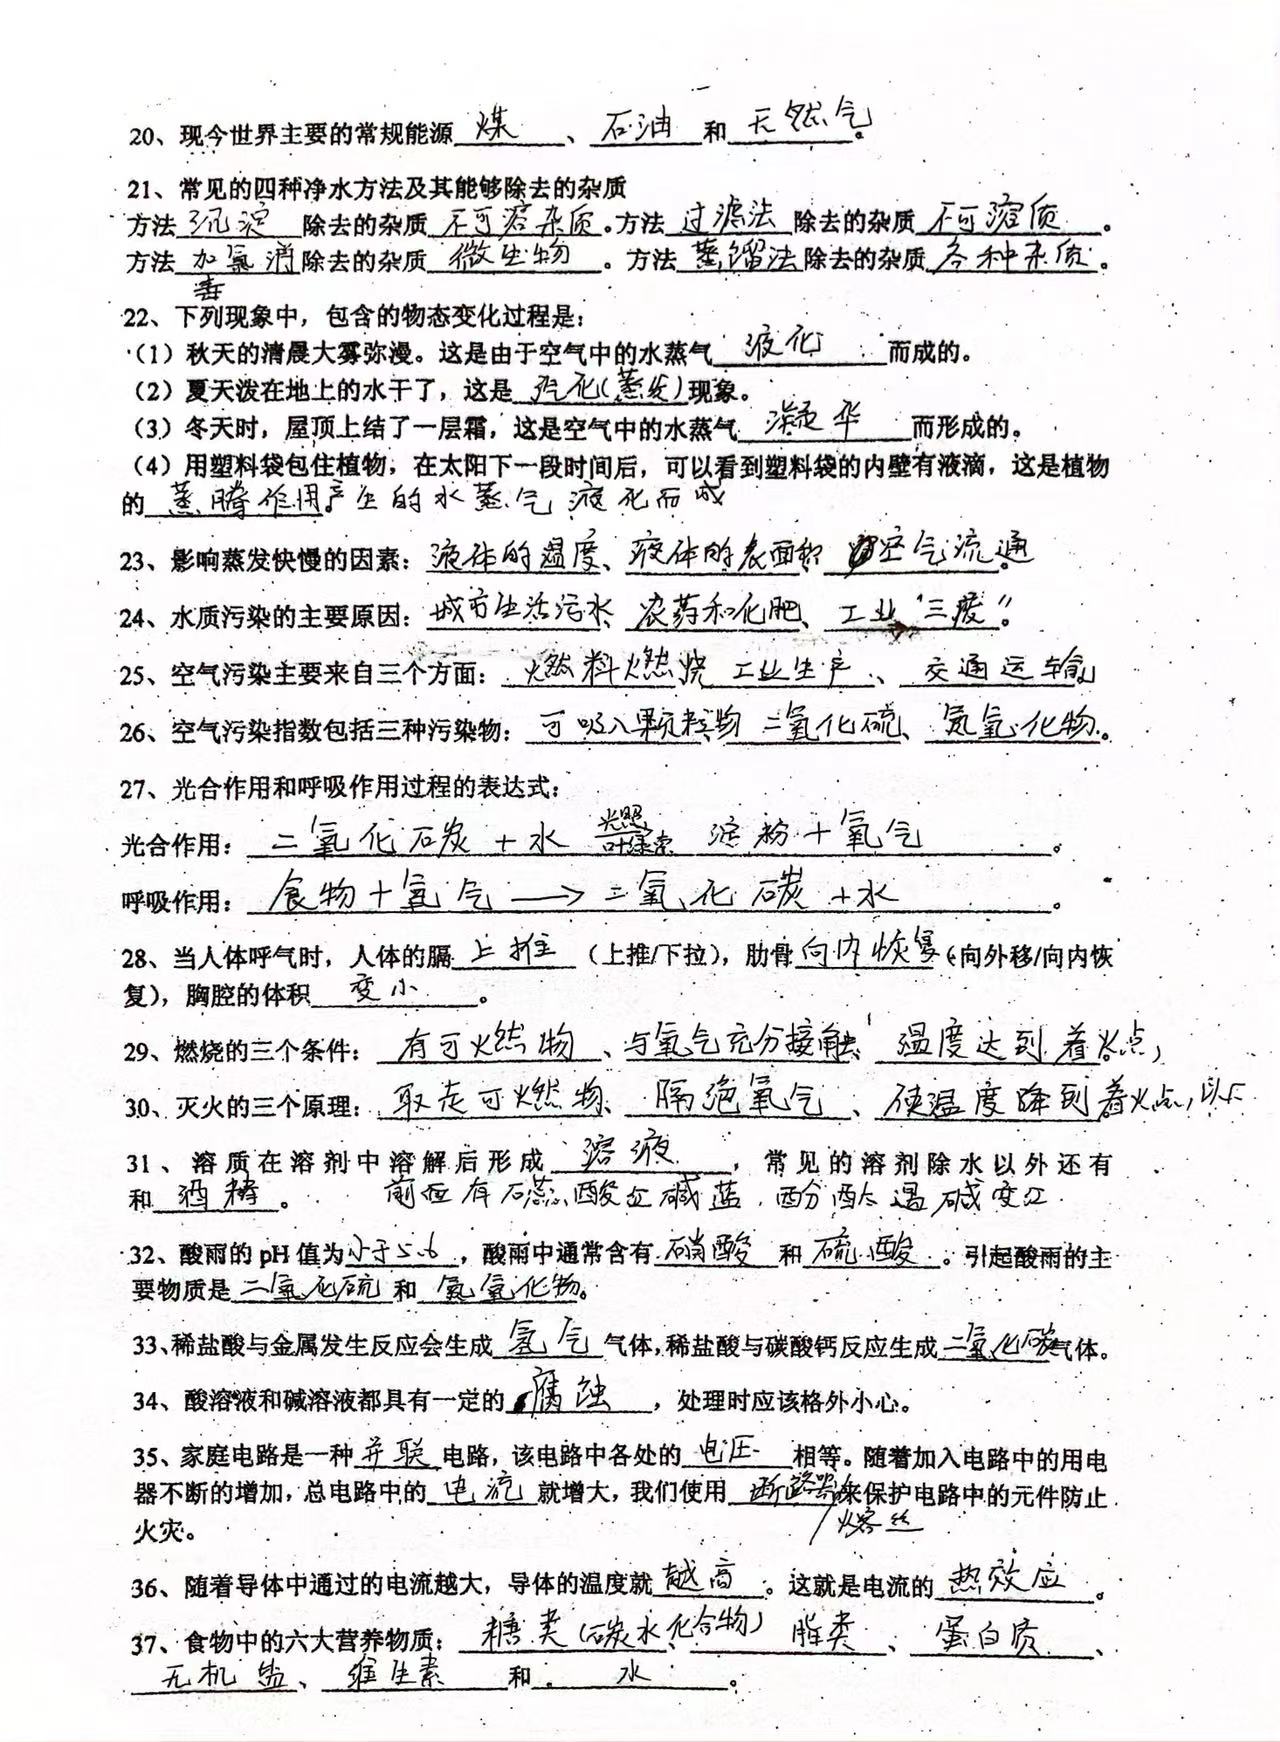 20、现今世界主要的常规能源 煤 、 石油 和 天然气 。
21、常见的四种净水方法及其能够除去的杂质
方法 沉淀 除去的杂质 不可溶杂质 。方法 过滤法 除去的杂质 不可溶质 。
方法 加氯消毒 除去的杂质 微生物 。方法 蒸馏法 除去的杂质 各种杂质 。
22、下列现象中，包含的物态变化过程是：
（1）秋天的清晨大雾弥漫。这是由于空气中的水蒸气 液化 而成的。
（2）夏天泼在地上的水干了，这是 汽化(蒸发) 现象。
（3）冬天时，屋顶上结了一层霜，这是空气中的水蒸气 凝华 而形成的。
（4）用塑料袋包住植物，在太阳下一段时间后，可以看到塑料袋的内壁有液滴，这是植物
的 蒸腾作用产生的水蒸气液化而成
23、影响蒸发快慢的因素： 液体的温度 、 液体的表面积 空气流通
24、水质污染的主要原因： 城市生活污水 、 农药和化肥 、 工业“三废” 。
25、空气污染主要来自三个方面： 燃料燃烧 工业生产 、 交通运输
26、空气污染指数包括三种污染物： 可吸入颗粒物 二氧化硫 、 氮氧化物 。
27、光合作用和呼吸作用过程的表达式：
光照
光合作用： 二氧化碳＋水 叶绿素 淀粉＋氧气 。
呼吸作用： 食物＋氧气 → 二氧化碳＋水 。
28、当人体呼气时，人体的膈 上推 （上推/下拉），肋骨 向内恢复 （向外移/向内恢
复），胸腔的体积 变小 。
29、燃烧的三个条件： 有可燃物 、 与氧气充分接触 、 温度达到着火点
30、灭火的三个原理： 取走可燃物 、 隔绝氧气 、 使温度降到着火点以下
31、溶质在溶剂中溶解后形成 溶液 ，常见的溶剂除水以外还有
和 酒精 。 前面有石蕊酸红碱蓝．酚酞遇碱变红
32、酸雨的 pH 值为 小于5.6 ，酸雨中通常含有 硝酸 和 硫酸 。引起酸雨的主
要物质是 二氧化硫 和 氮氧化物 。
33、稀盐酸与金属发生反应会生成 氢气 气体，稀盐酸与碳酸钙反应生成 二氧化碳 气体。
34、酸溶液和碱溶液都具有一定的 腐蚀 ，处理时应该格外小心。
35、家庭电路是一种 并联 电路，该电路中各处的 电压 相等。随着加入电路中的用电
器不断的增加，总电路中的 电流 就增大，我们使用 断路器 来保护电路中的元件防止
火灾。 /熔丝
36、随着导体中通过的电流越大，导体的温度就 越高 。这就是电流的 热效应 。
37、食物中的六大营养物质： 糖类(碳水化合物) 脂类 、 蛋白质 、
无机盐 、 维生素 和 水 。